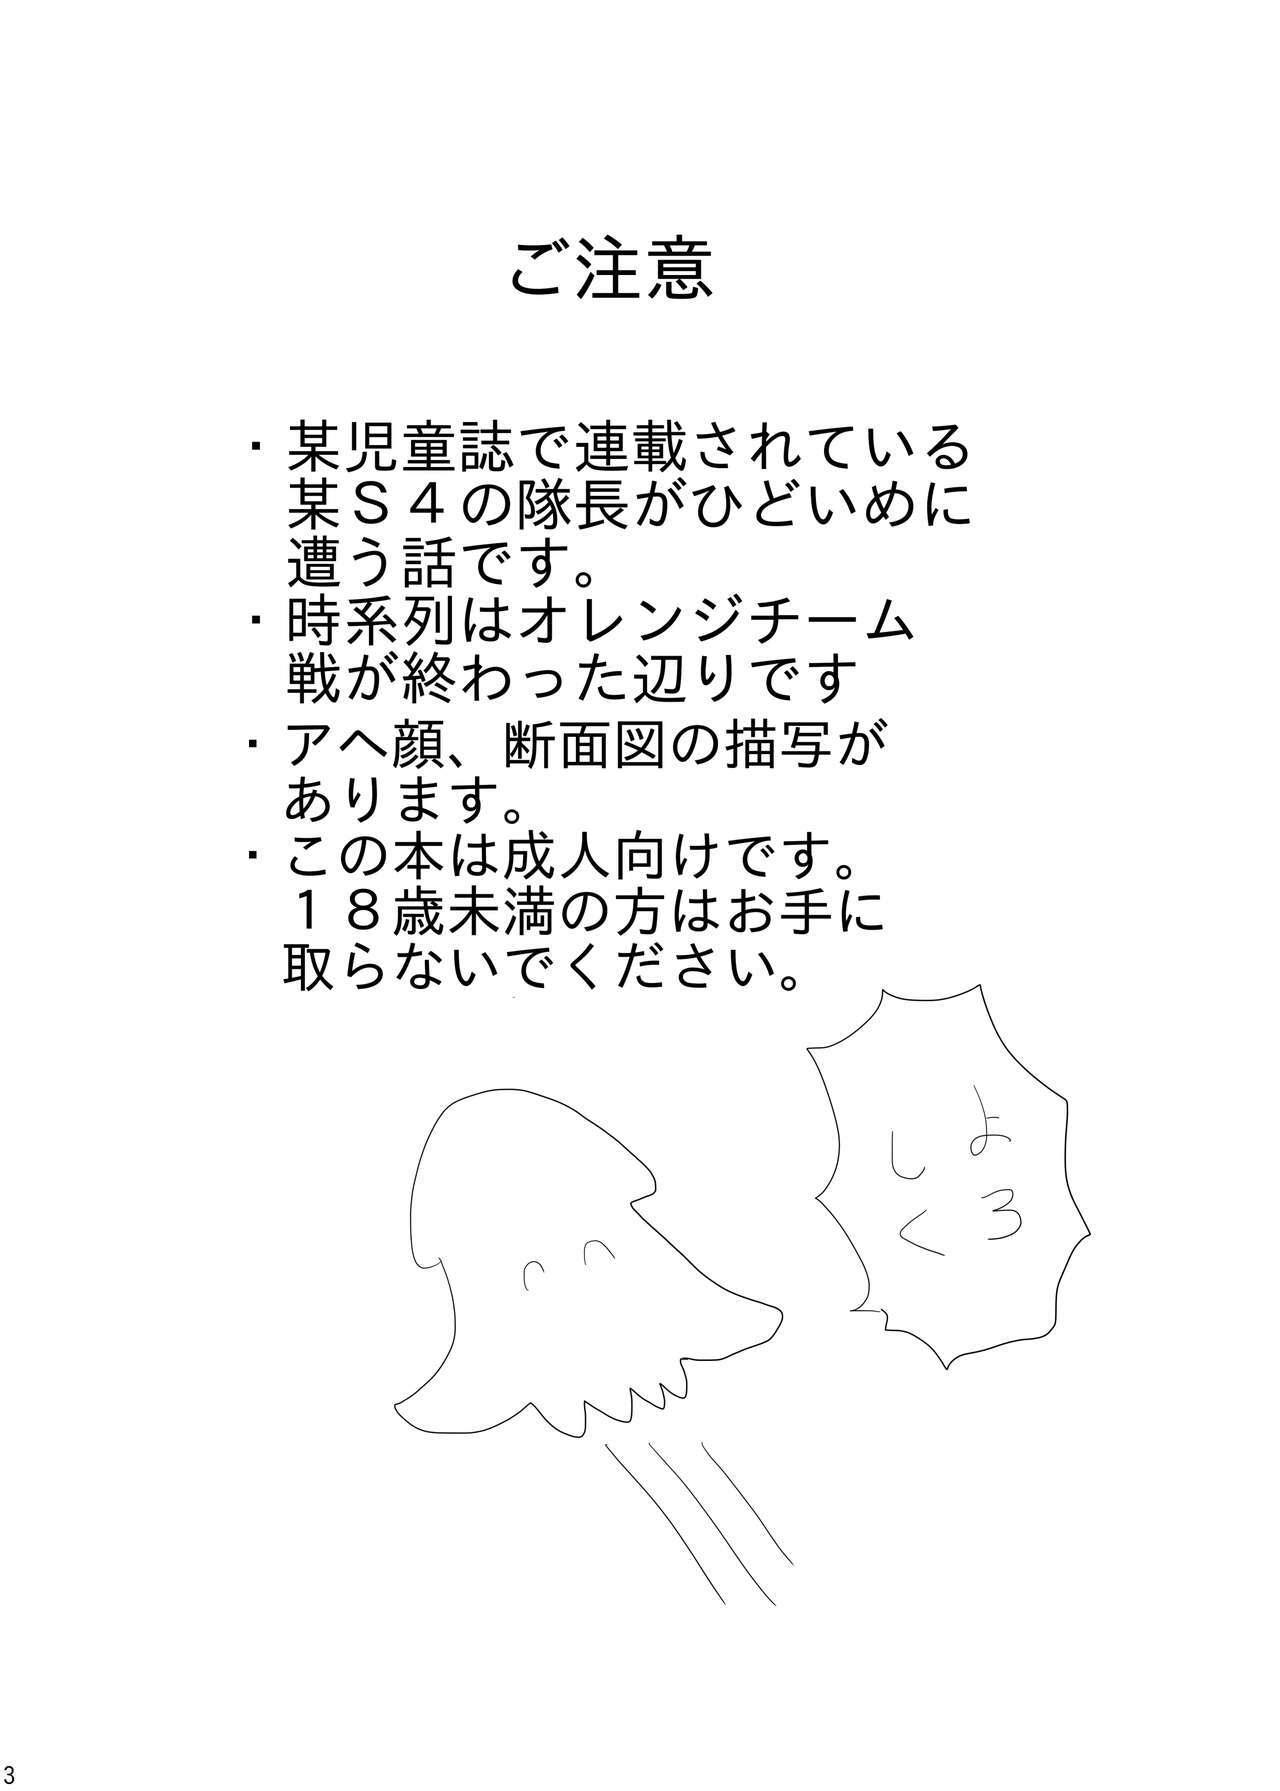 ご注意
・某児童誌で連載されている
某Ｓ４の隊長がひどいめに
遭う話です。
・時系列はオレンジチーム
戦が終わった辺りです
・アヘ顔、断面図の描写が
あります。
・この本は成人向けです。
１８歳未満の方はお手に
取らないでください。
よろ
しく
3